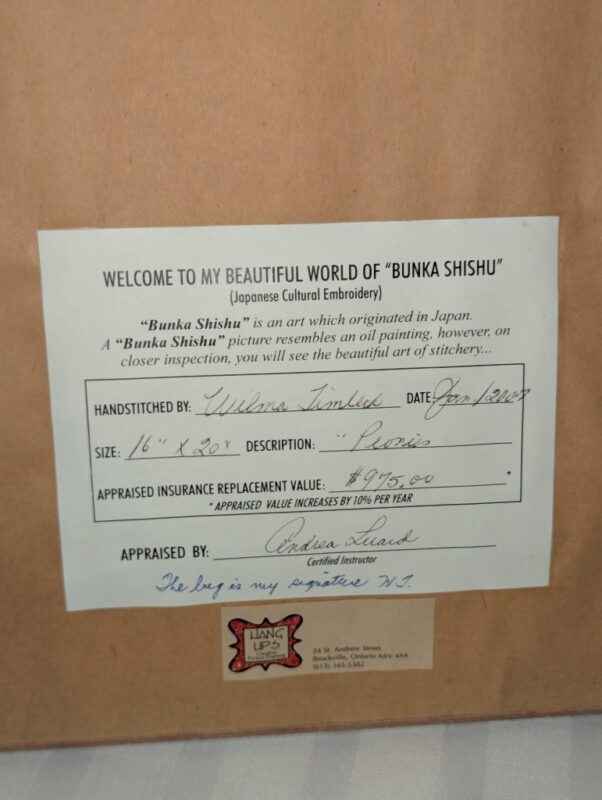 WELCOME TO MY BEAUTIFUL WORLD OF "BUNKA SHISHU"
(Japanese Cultural Embroidery)
"Bunka Shishu" is an art which originated in Japan.
A "Bunka Shishu" picture resembles an oil painting, however, on
closer inspection, you will see the beautiful art of stitchery...
HANDSTITCHED BY: Wilma DATE: Jan/2007
SIZE: 16" X 20" DESCRIPTION: "Peonies
APPRAISED INSURANCE REPLACEMENT VALUE: $975.00
* APPRAISED VALUE INCREASES BY 10% PER YEAR
APPRAISED BY: Andrea Luard
Certified Instructor
The bug is my signature W.T.
HANG
UPS
Street
Brockville, Ontario